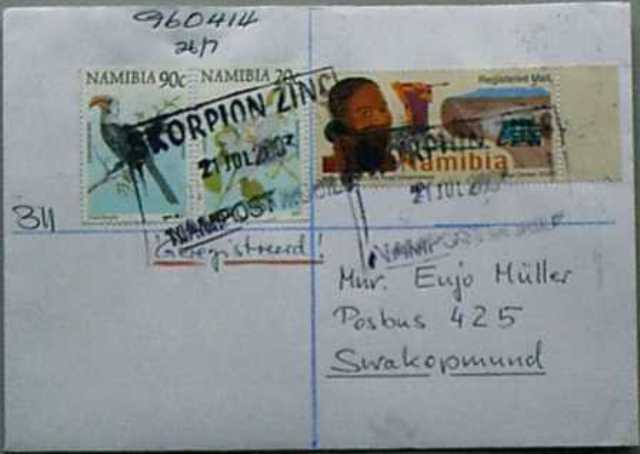 960414
26/7
NAMIBIA 90c
NAMIBIA 20c
Registered Mail
Namibia
SKORPION ZINC
21 JUL 2007
NAMPOST MOBILE
SKORPION
21 JUL 2007
NAMPOST MOBILE
311
Geregistreerd!
Mnr. Enjo Müller
Posbus 425
Swakopmund